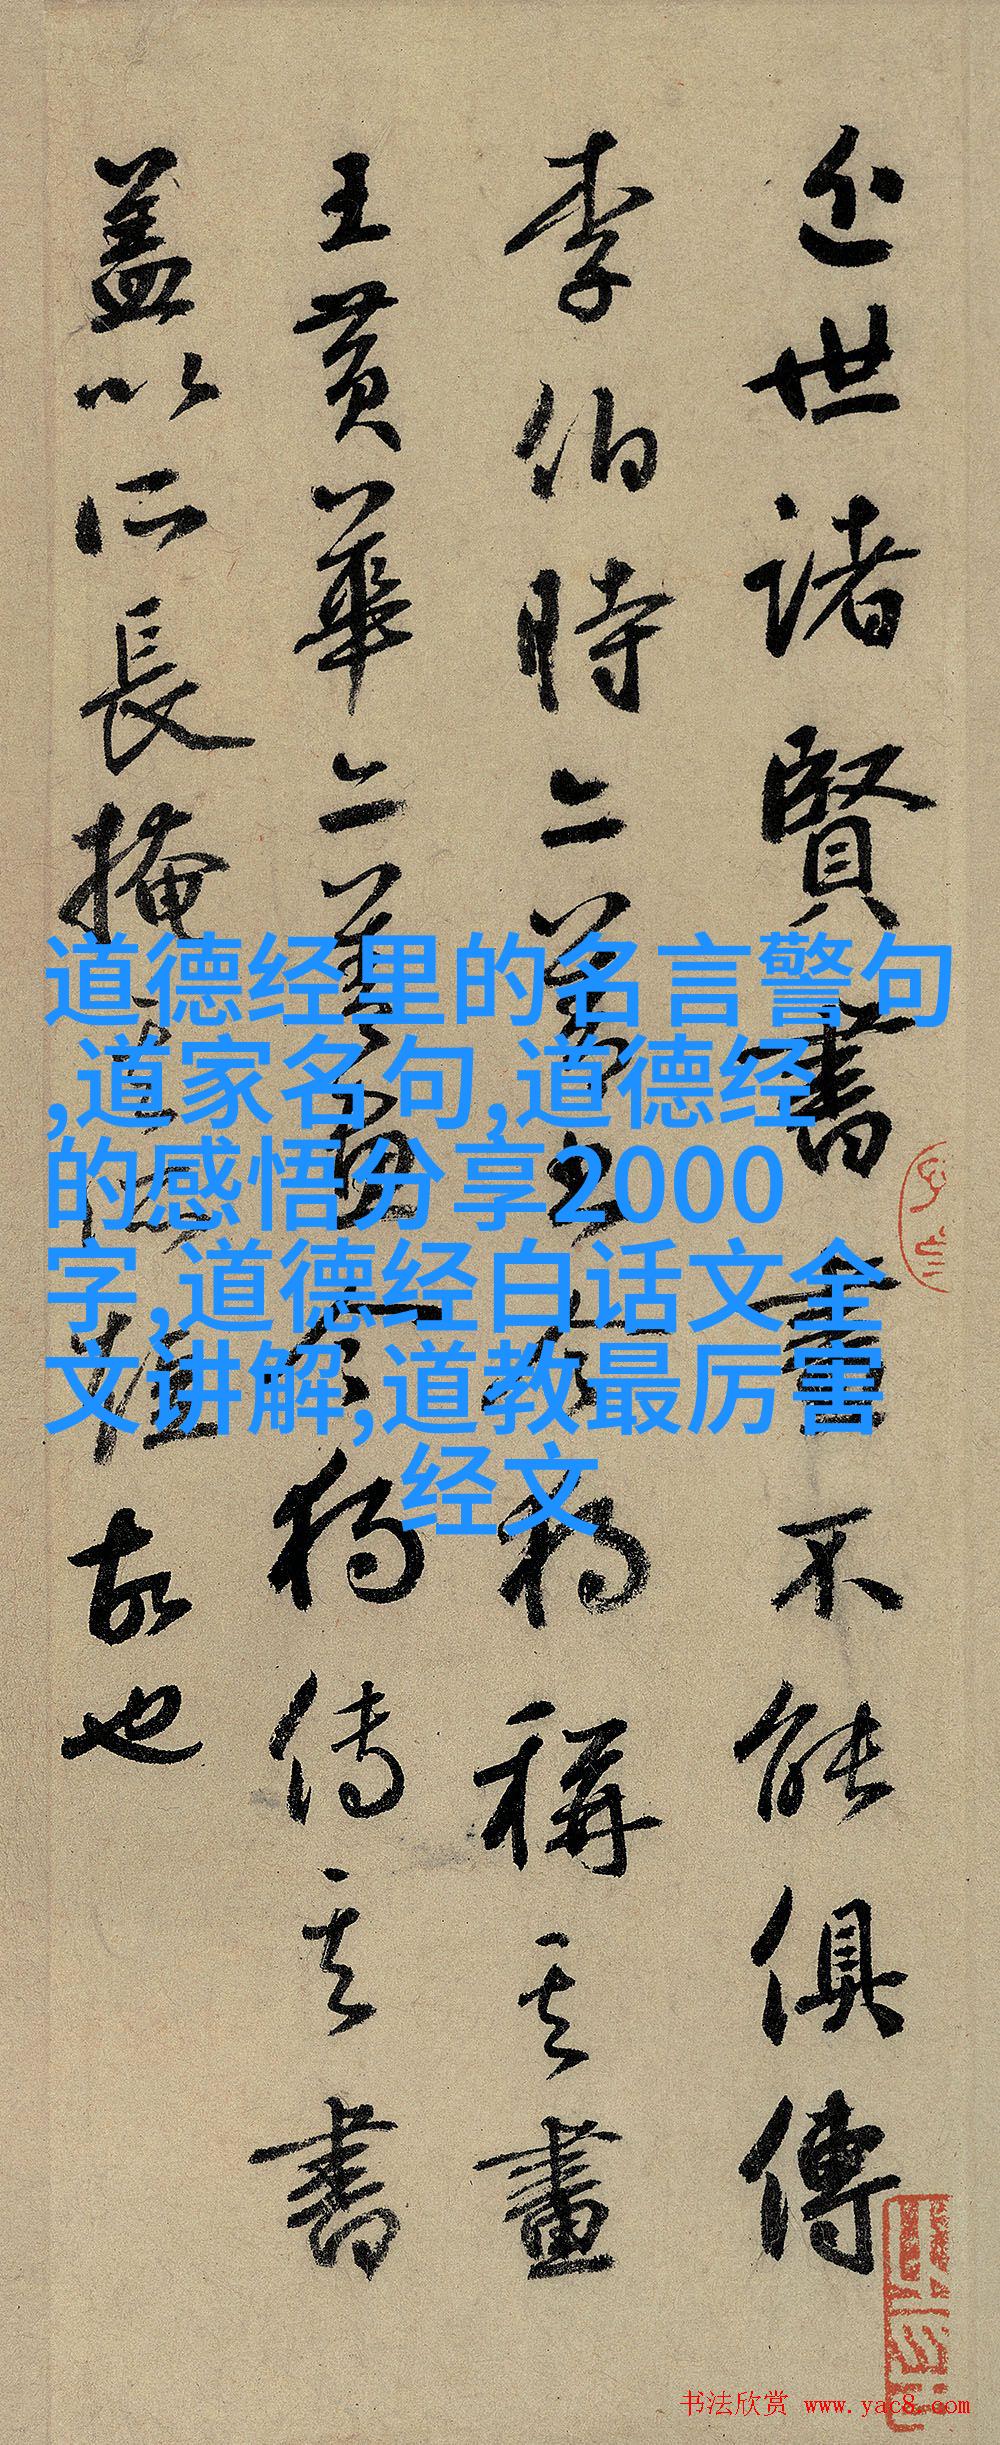 近世諸賢書畫不能俱傳
李伯時獨稱其畫
王黃華獨傳其書
蓋以所長掩故也
道德经里的名言警句
,道家名句,道德经
的感悟分享2000
字,道德经白话文全
文讲解,道教最厉害
经文
书法欣赏 www.yac8.com